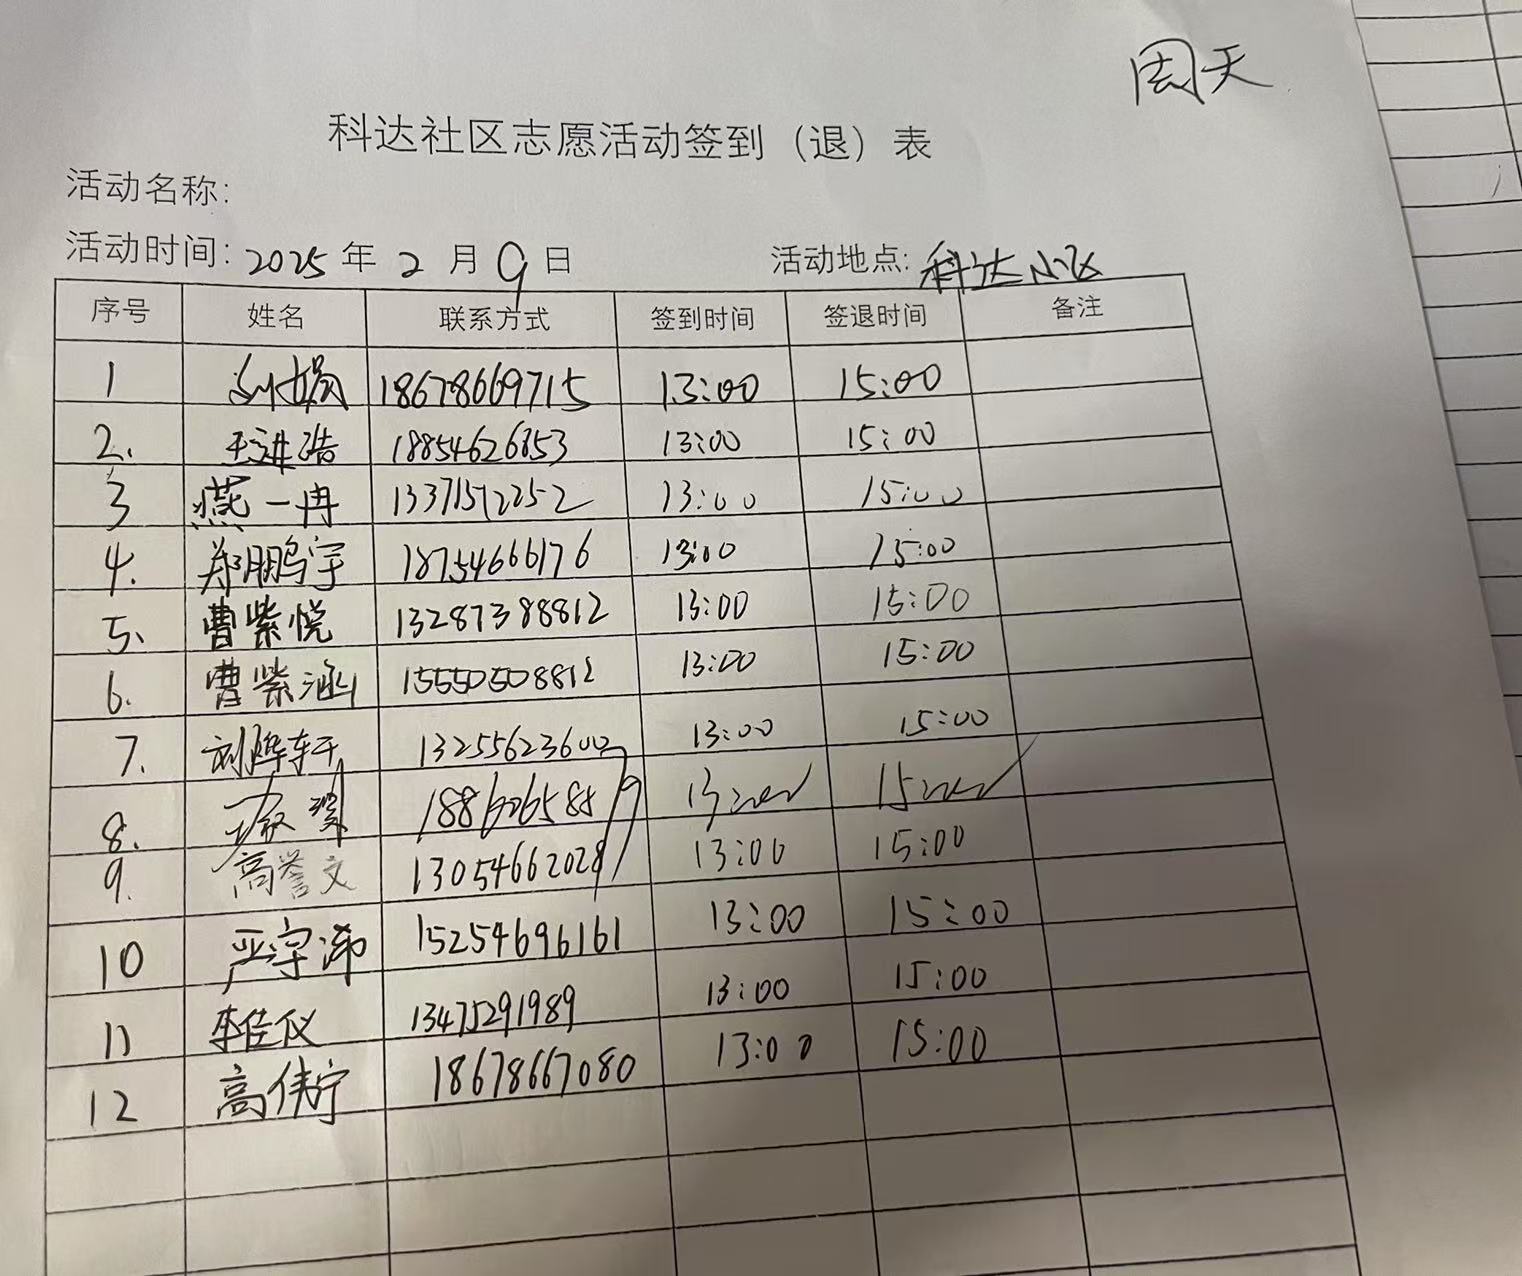 周天
科达社区志愿活动签到（退）表
活动名称:
活动时间: 2025 年 2 月 9 日 活动地点: 科达小区
序号 姓名 联系方式 签到时间 签退时间 备注
1 刘娟 18678669715 13:00 15:00
2. 王进浩 13:00 15:00
3 燕一冉 13371512252 13:00 15:00
4. 郑鹏宇 18754666176 13:00 15:00
5. 曹紫悦 13287388812 13:00 15:00
6. 曹紫涵 15550508812 13:00 15:00
7. 刘烨轩 13255623600 13:00 15:00
8.
9. 高誉文 13054662028 13:00 15:00
10 严宇沛 15254696161 13:00 15:00
11 李佳仪 13475291989 13:00 15:00
12 高伟宁 18678667080 13:00 15:00